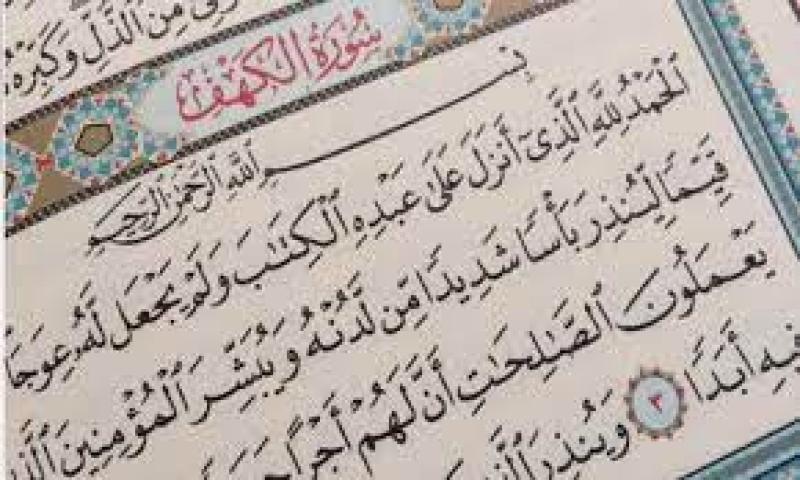 مِّنَ ٱلذُّلِّ وَكَبِّرْهُ
سُورَةُ الْكَهْفِ
بِسْمِ اللَّهِ الرَّحْمَٰنِ الرَّحِيمِ
ٱلْحَمْدُ لِلَّهِ ٱلَّذِىٓ أَنزَلَ عَلَىٰ عَبْدِهِ ٱلْكِتَٰبَ وَلَمْ يَجْعَل لَّهُۥ عِوَجَا
قَيِّمًا لِّيُنذِرَ بَأْسًا شَدِيدًا مِّن لَّدُنْهُ وَيُبَشِّرَ ٱلْمُؤْمِنِينَ
يَعْمَلُونَ ٱلصَّٰلِحَٰتِ أَنَّ لَهُمْ أَجْرًا
فِيهِ أَبَدًا ٣ وَيُنذِرَ